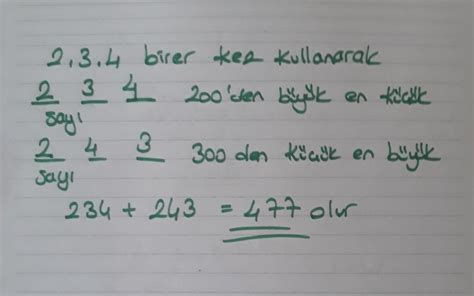 2.3.4 birer kez kullanarak
2 3 4 200'den büyük en küçük
sayı
2 4 3 300 den küçük en büyük
sayı
234 + 243 = 477 olur